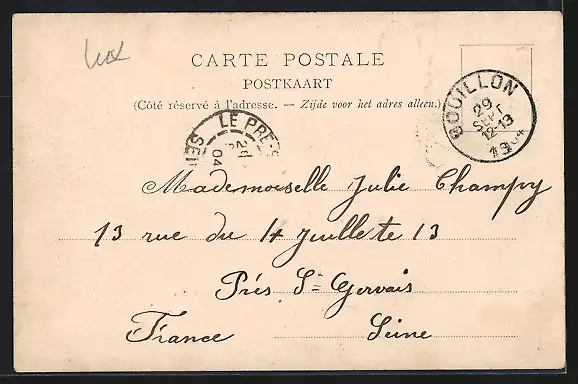 CARTE POSTALE
POSTKAART
(Côté réservé à l'adresse. — Zijde voor het adres alleen.)
BOUILLON
29
SEPT
12-13
LE PRE-S
SEI
04
Mademoiselle Julie Champy
13 rue du 14 Juillette 13
Prés St= Gervais
France Seine